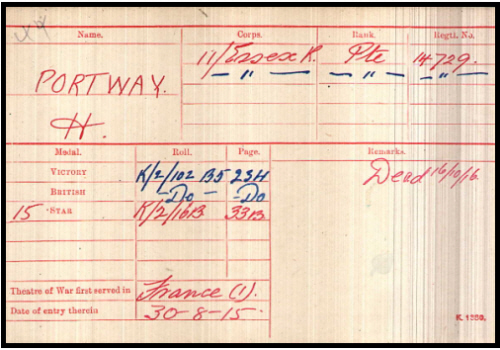 Name. Corps. Rank. Regtl. No.
11/Essex R. Pte 14729.
— " — — " — — " —
PORTWAY.
H.
Medal. Roll. Page. Remarks.
VICTORY K/2/102 B5 2341 Dead 16/10/16.
BRITISH — Do — - Do
15 STAR K/2/16B 33B
Theatre of War first served in France (1).
Date of entry therein 30-8-15.
K. 1380.